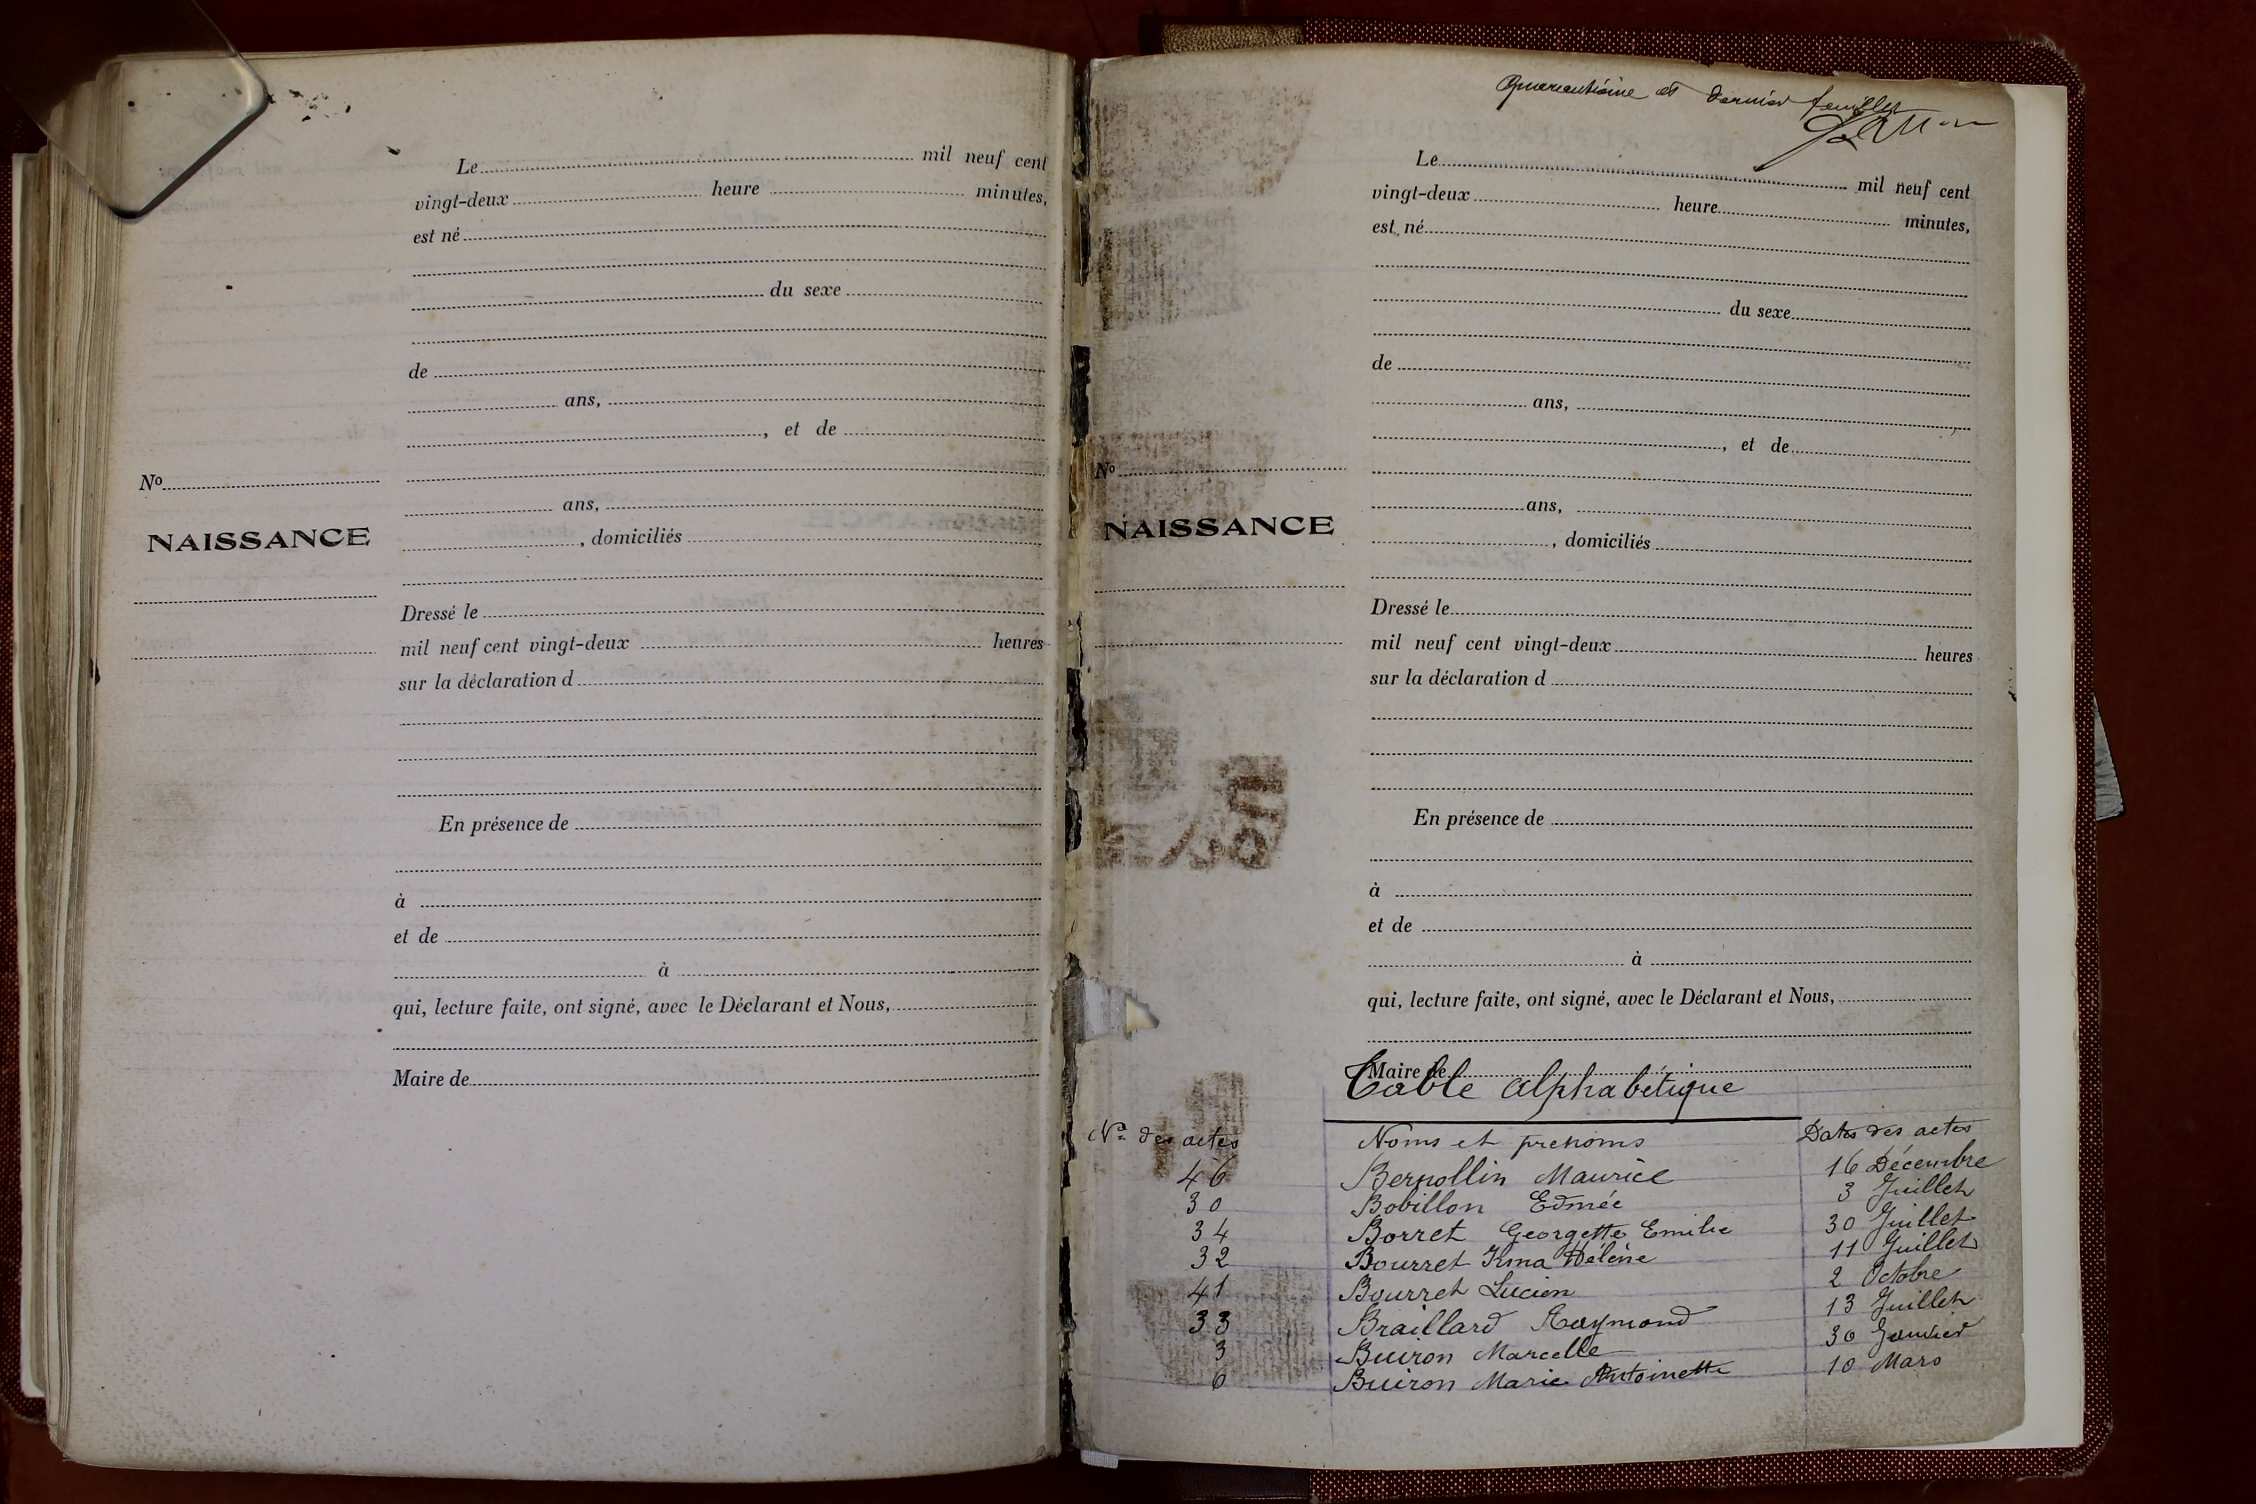 Le mil neuf cent
vingt-deux heure minutes,
est né
du sexe
de
ans,
, et de
ans,
, domiciliés
Dressé le
mil neuf cent vingt-deux heures
sur la déclaration d
En présence de
à
et de
à
qui, lecture faite, ont signé, avec le Déclarant et Nous,
Maire de
No
NAISSANCE
Quarantième et dernier feuillet
Le mil neuf cent
vingt-deux heure minutes,
est né
du sexe
de
ans,
, et de
ans,
, domiciliés
Dressé le
mil neuf cent vingt-deux heures
sur la déclaration d
En présence de
à
et de
à
qui, lecture faite, ont signé, avec le Déclarant et Nous,
Maire de
No
NAISSANCE
Table alphabétique
Nos des actes Noms et prenoms Dates des actes
46 Bernollin Maurice 16 Décembre
30 Bobillon Edmée 3 Juillet
34 Borret Georgette Emilie 30 Juillet
32 Bourret Irma Hélène 11 Juillet
41 Bourret Lucien 2 Octobre
33 Braillard Raymond 13 Juillet
3 Buiron Marcelle 30 Janvier
6 Buiron Marie Antoinette 10 Mars